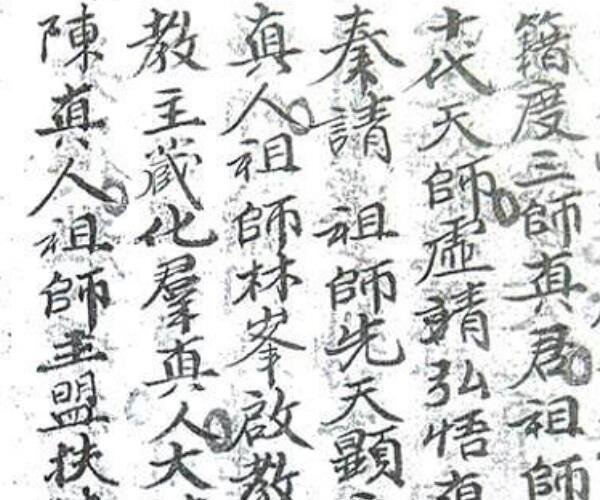 籍度三師真君祖師
十代天師虛靖弘悟真
秦請 祖師先天顯
真人祖師林峯啟教
教主蔵化羣真人大
陳真人祖師主盟扶